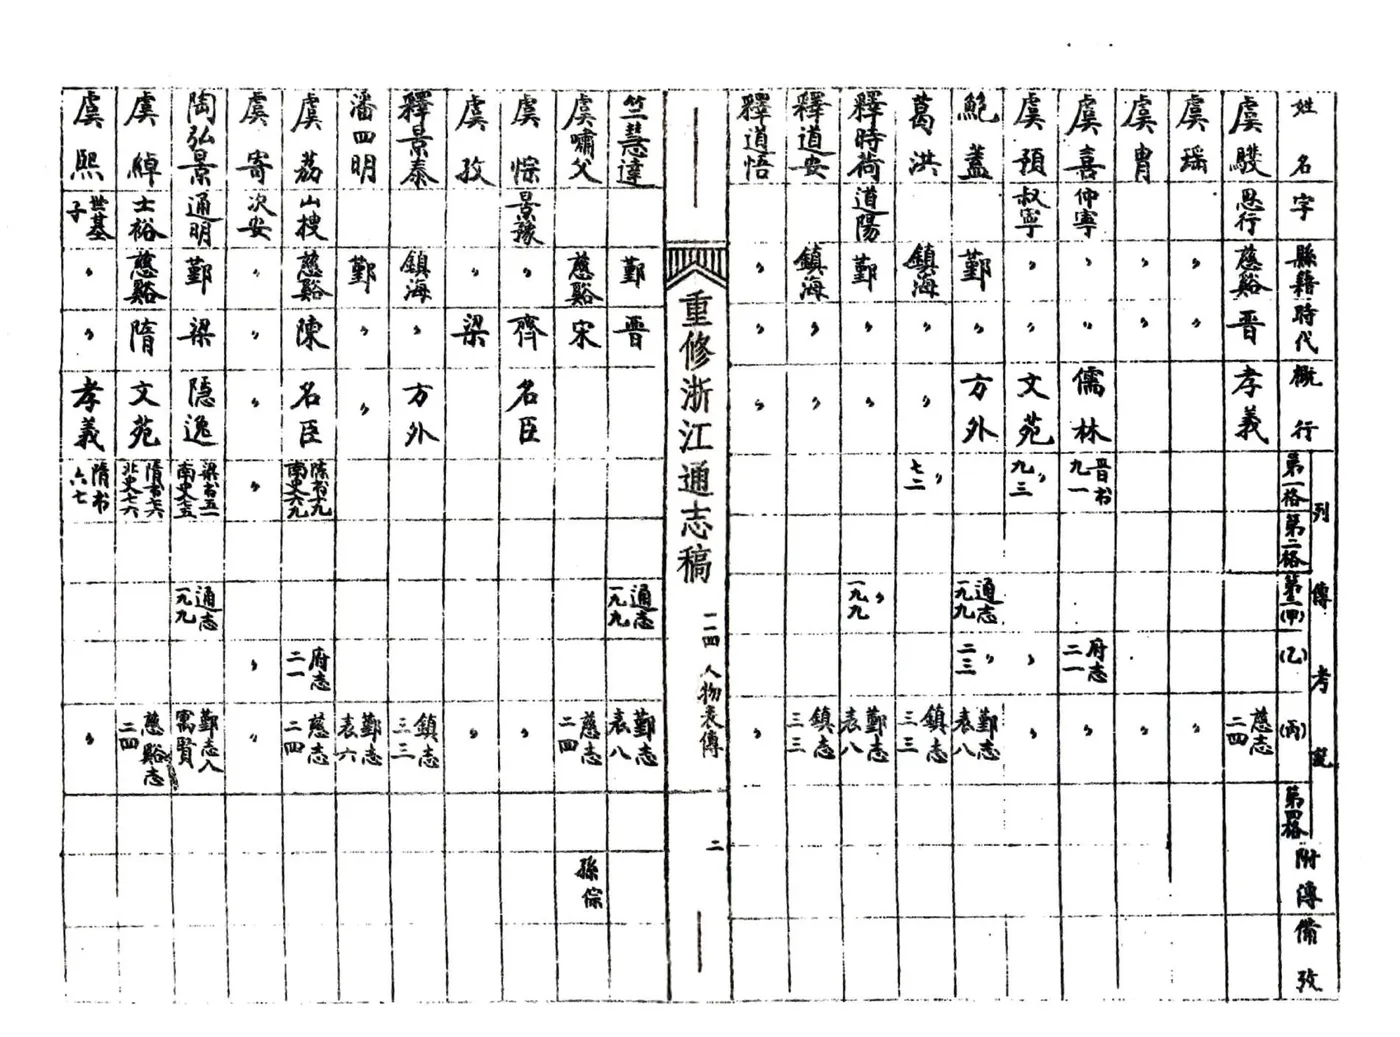 姓名 字 縣籍 時代 概行 列傳考說 第一格 第二格 第三(甲) (乙) (丙) 第四格 附傳 備攷
虞騣 思行 慈谿 晋 孝義 慈志二四
虞瑶 〃 〃 〃
虞胄 〃 〃 〃
虞喜 仲寧 〃 〃 儒林 晋书九一 府志二一 〃
虞預 叔寧 〃 〃 文苑 〃九三 〃 〃
鮑蓋 鄞 〃 方外 通志一九九 〃二三 鄞志表八
葛洪 鎮海 〃 〃 〃七二 鎮志三三
釋時荷 道陽 鄞 〃 〃 〃一九九 鄞志表八
釋道安 鎮海 〃 〃 鎮志三三
釋道悟 〃 〃 〃 〃
重修浙江通志稿 一一四 人物表傳 二
竺慧達 鄞 晋 通志一九九 鄞志表八
虞嘯父 慈谿 宋 慈志二四 孫悰
虞悰 景豫 〃 齊 名臣 〃
虞孜 〃 梁 〃
釋景泰 鎮海 〃 方外 鎮志三三
潘四明 鄞 〃 〃 鄞志表六
虞荔 山披 慈谿 陳 名臣 陈书十九 南史六九 府志二一 慈志二四
虞寄 次安 〃 〃 〃 〃 〃 〃
陶弘景 通明 鄞 梁 隱逸 梁书五一 南史七五 通志一九九 鄞志八寓賢
虞綽 士裕 慈谿 隋 文苑 隋书七六 北史七六 慈谿志二四
虞熙 世基子 〃 〃 孝義 隋书六七 〃